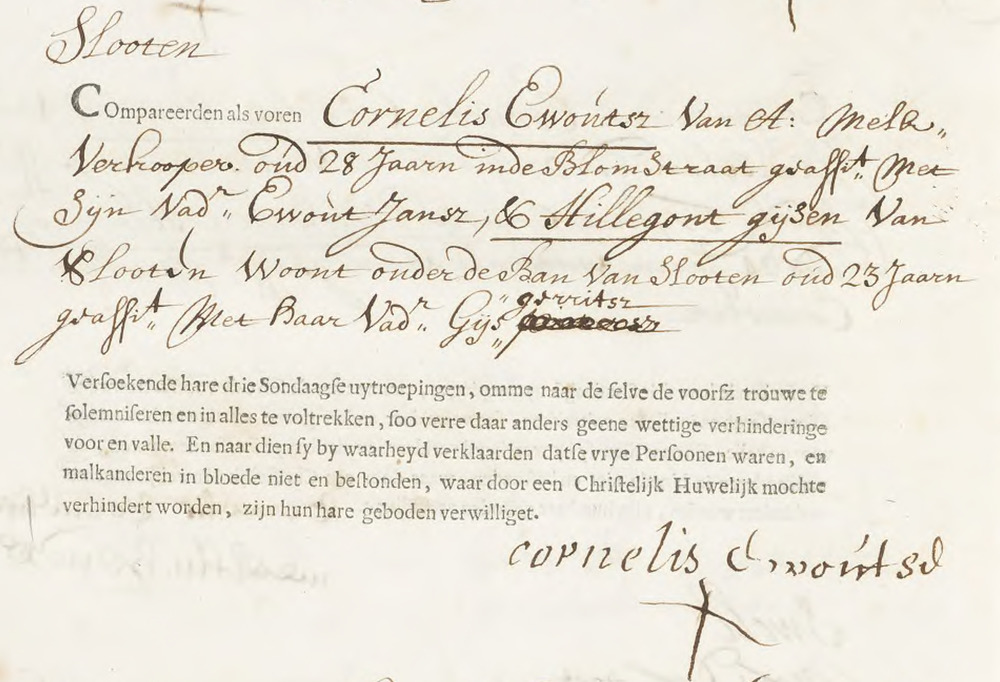 Slooten
COmpareerden als voren Cornelis Ewoutsz Van A: Melk„
Verkooper. oud 28 Jaarn inde Blomstraat geasst. Met
Sijn Vadr„ Ewout Jansz, & Hillegont gijsen Van
Slooten Woont onder de Ban Van Slooten oud 23 Jaarn
geasst. Met Haar Vadr„ Gijs gerritsz
Versoekende hare drie Sondaagse uytroepingen, omme naar de selve de voorsz trouwe te
solemniseren en in alles te voltrekken, soo verre daar anders geene wettige verhinderinge
voor en valle. En naar dien sy by waarheyd verklaarden datse vrye Persoonen waren, en
malkanderen in bloede niet en bestonden, waar door een Christelijk Huwelijk mochte
verhindert worden, zijn hun hare geboden verwilliget.
cornelis Ewoutsd